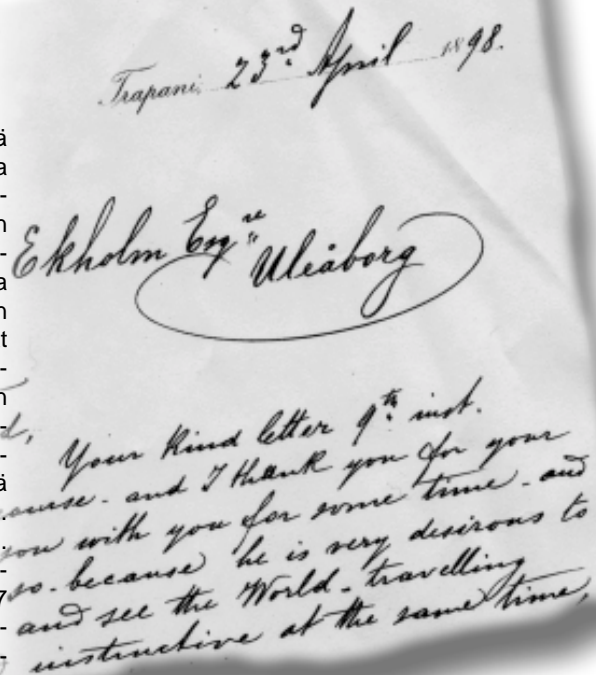 Trapani, 23rd April 1898.
Ekholm Esqre
Uleåborg
Your kind letter 9th inst.
and I thank you for your
you with you for some time - and
so - because he is very desirous to
and see the World - travelling
instructive at the same time,
ä
a
-
n
-
a
n
t
-
n
-
-
ä
.
.
-
7
-
-